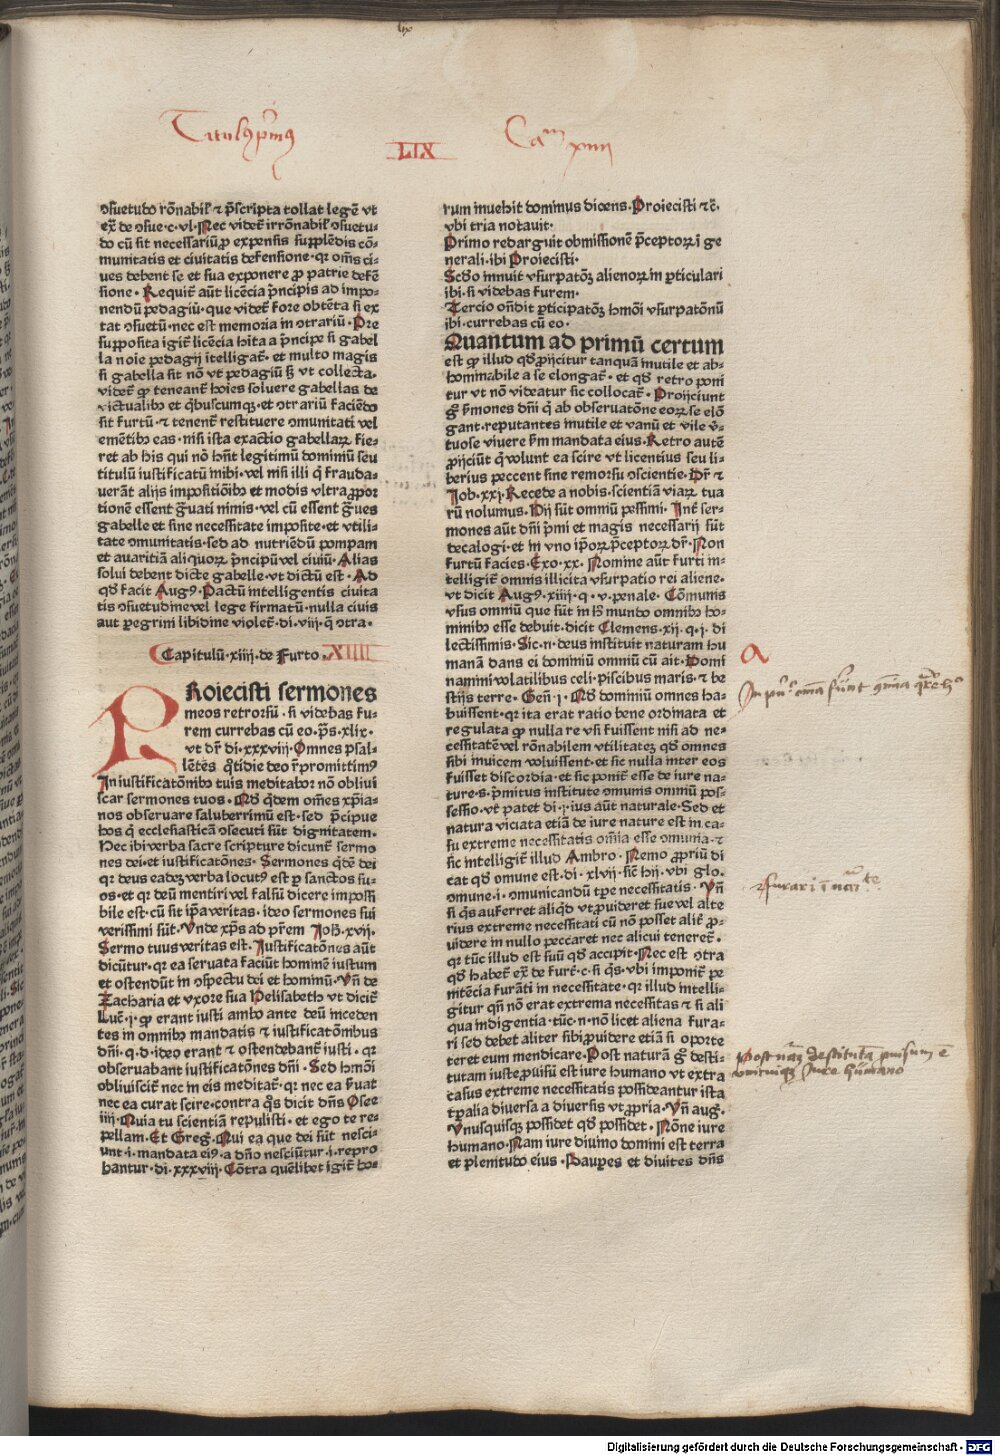 lix
Titulꝰ p̄mꝰ
LIX
Caᵐ xiiii
ꝯsuetudo rōnabil' ⁊ p̄scripta tollat legē vt
ex̄ de ꝯsue·c·vl·Nec videt᷑ irrōnabil' ꝯsuetu⸗
do cū sit necessariū ꝓ expensis supplēdis cō⸗
munitatis et ciuitatis defensione·qꝛ om̄s ci⸗
ues debent se et sua exponere ꝓ patrie defē
sione·Requirit᷑ aūt licēcia p̄ncipis ad impo⸗
nendū pedagiū·que videt᷑ fore obtēta si ex
tat ꝯsuetū·nec est memoria in ꝯtrariū·Pre
supposita igit᷑ licēcia hita a p̄ncipe si gabel
la noīe pedagij ītelligat᷑·et multo magis
si gabella sit nō vt pedagiū sꝫ vt collecta·
videt᷑ ꝙ teneant᷑ hoīes soluere gabellas de
victualibꝰ et q̇buscumqꝫ·et ꝯtrariū faciēdo
sit furtū·⁊ tenent᷑ restituere ꝯmunitati vel
emētibꝰ eas·nisi ista exactio gabellaꝝ fie⸗
ret ab his qui nō hn̄t legitimū dominiū seu
titulū iustificatū mihi·vel nisi illi q̇ frauda⸗
uerāt alijs impositiōibꝰ et modis vltra ꝓpor
tionē essent gͣuati nimis·vel cū essent gͣues
gabelle et sine necessitate imposite·et vtili⸗
tate ꝯmunitatis·sed ad nutriēdū pompam
et auaritiā aliquoꝝ p̄ncipū vel ciuiū·Alias
solui debent dicte gabelle·vt dictū est·Ad
qd̄ facit Augꝰ·Pactū intelligentis ciuita
tis ꝯsuetudine vel lege firmatū·nulla ciuis
aut peregrini libidine violet᷑·di·viij·q̄ ꝯtra·
Capitulū·xiiij·de Furto·XIIII
PRoiecisti sermones
meos retrorsū·si videbas fu⸗
rem currebas cū eo·p̄s·xlix·
vt dr̄ di·xxxviij·Omnes psal⸗
lētes q̇tidie deo r̄promittimꝰ
In iustificatōnibꝰ tuis meditabor nō obliui
scar sermones tuos·Qd̄ q̇dem om̄es xp̄ia⸗
nos obseruare saluberrimū est·sed p̄cipue
hos q̇ ecclesiasticā ꝯsecuti sūt dignitatem·
Hec ibi verba sacre scripture dicunt᷑ sermo
nes dei·et iustificatōnes·Sermones q̇dē dei
qꝛ deus eadeꝫ verba locutꝰ est ꝑ sanctos su⸗
os·et qꝛ deū mentiri vel falsū dicere impossi
bile est·cū sit ip̄a veritas·ideo sermones sui
verissimi sūt·Unde xp̄s ad pr̄em Joh·xvij·
Sermo tuus veritas est·Justificatōnes aūt
dicūtur·qꝛ ea seruata faciūt hominē iustum
et ostendūt in ꝯspectu dei et hominū·Vn̄ de
Zacharia et vxore sua Helisabeth vt dicit᷑
Luc·i·ꝙ erant iusti ambo ante deū inceden
tes in omnibꝰ mandatis ⁊ iustificatōnibus
dn̄i·q·d·ideo erant ⁊ ostendebant᷑ iusti·qꝛ
obseruabant iustificatōnes dn̄i·Sed hmōi
obliuiscit᷑ nec in eis meditat᷑·qꝛ nec ea ẜuat
nec ea curat scire·contra q̊s dicit dn̄s Osee
iiij·Quia tu scientiā repulisti·et ego te re⸗
pellam·Et Greg·Qui ea que dei sūt nesci⸗
unt·i·mandata eiꝰ·a dn̄o nesciūtur·i·repro
bantur·di·xxxviij·Cōtra quēlibet igit᷑ ho⸗
rum inuehit dominus dicens·Proiecisti ⁊c̄·
vbi tria notauit·
Primo redarguit obmissionē p̄ceptoꝝ ī ge
nerali·ibi Proiecisti·
Scd̄o innuit vsurpatōꝫ alienoꝝ in ꝑticulari
ibi·si videbas furem·
Tercio on̄dit ꝑticipatōꝫ hmōi vsurpatōnū
ibi·currebas cū eo·
Quantum ad primū certum
est ꝙ illud qd̄ ꝓijcitur tanquā inutile et ab⸗
hominabile a se elongat᷑·et qd̄ retro poni
tur vt nō videatur sic collocat᷑·Proijciunt
gͦ ẜmones dn̄i q̇ ab obseruatōne eoꝝ se elō
gant·reputantes inutile et vanū et vile v̄⸗
tuose viuere ẜm mandata eius·Retro autē
ꝓijciūt q̇ volunt ea scire vt licentius seu li⸗
berius peccent sine remorsu ꝯscientie·Dr̄ ⁊
Job·xxj·Recede a nobis·scientiā viaꝝ tua
rū nolumus·Hij sūt omniū pessimi·Int᷑ ser⸗
mones aūt dn̄i p̄mi et magis necessarij sūt
decalogi·et in vno ip̄oꝝ p̄ceptoꝝ dr̄·Non
furtū facies·Exo·xx·Nomine aūt furti in⸗
telligit᷑ omnis illicita vsurpatio rei aliene·
vt dicit Augꝰ·xiiij·q·v·penale·Cōmunis
vsus omniū que sūt in hͦ mundo omnibꝰ ho⸗
minibꝰ esse debuit·dicit Clemens·xij·q·i·di
lectissimis·Sic·n·deus instituit naturam hu
manā dans ei dominiū omniū cū ait·Domi
namini volatilibus celi·piscibus maris·⁊ be
stijs terre·Gen̄·i·Qd̄ dominiū omnes ha⸗
buissent·qꝛ ita erat ratio bene ordinata et
regulata ꝙ nulla re vsi fuissent nisi ad ne⸗
cessitatē vel rōnabilem vtilitateꝫ qd̄ omnes
sibi inuicem voluissent·et sic nulla inter eos
fuisset discordia·et sic ponit᷑ esse de iure na⸗
ture·s·p̄mitus institute ꝯmunis omniū pos⸗
sessio·vt patet di·i·ius aūt naturale·Sed et
natura viciata etiā de iure nature est in ca⸗
su extreme necessitatis om̄ia esse ꝯmunia·⁊
sic intelligit᷑ illud Ambro·Nemo ꝓpriū di
cat qd̄ ꝯmune est·di·xlvij·sic̄ hij·vbi glo·
ꝯmune·i·ꝯmunicandū tp̄e necessitatis·Vn̄
si q̇s auferret aliqd̄ vt ꝓuideret sue vel alte
rius extreme necessitati cū nō posset alit᷑ ꝓ⸗
uidere in nullo peccaret nec alicui teneret᷑·
qꝛ tūc illud est suū qd̄ accipit·Nec est ꝯtra
qd̄ habet᷑ ex̄ de furt᷑·c·si q̇s·vbi imponit᷑ pe
nitēcia furāti in necessitate·qꝛ illud intelli⸗
gitur qn̄ nō erat extrema necessitas ⁊ si ali
qua indigentia·tūc·n·nō licet aliena fura⸗
ri sed debet aliter sibi ꝓuidere etiā si oporte
teret eum mendicare·Post naturā gͦ desti⸗
tutam iuste ꝓuisū est iure humano vt extra
casus extreme necessitatis possideantur ista
tꝑalia diuersa a diuersis vt ꝓpria·Vn̄ aug·
Vnusquisqꝫ possidet qd̄ possidet·Nōne iure
humano·Nam iure diuino domini est terra
et plenitudo eius·Pauperes et diuites dn̄s
a
Post nāꝫ destitutā ꝓuisum ē
vnicuiqꝫ Jure humano
Digitalisierung gefördert durch die Deutsche Forschungsgemeinschaft - DFG